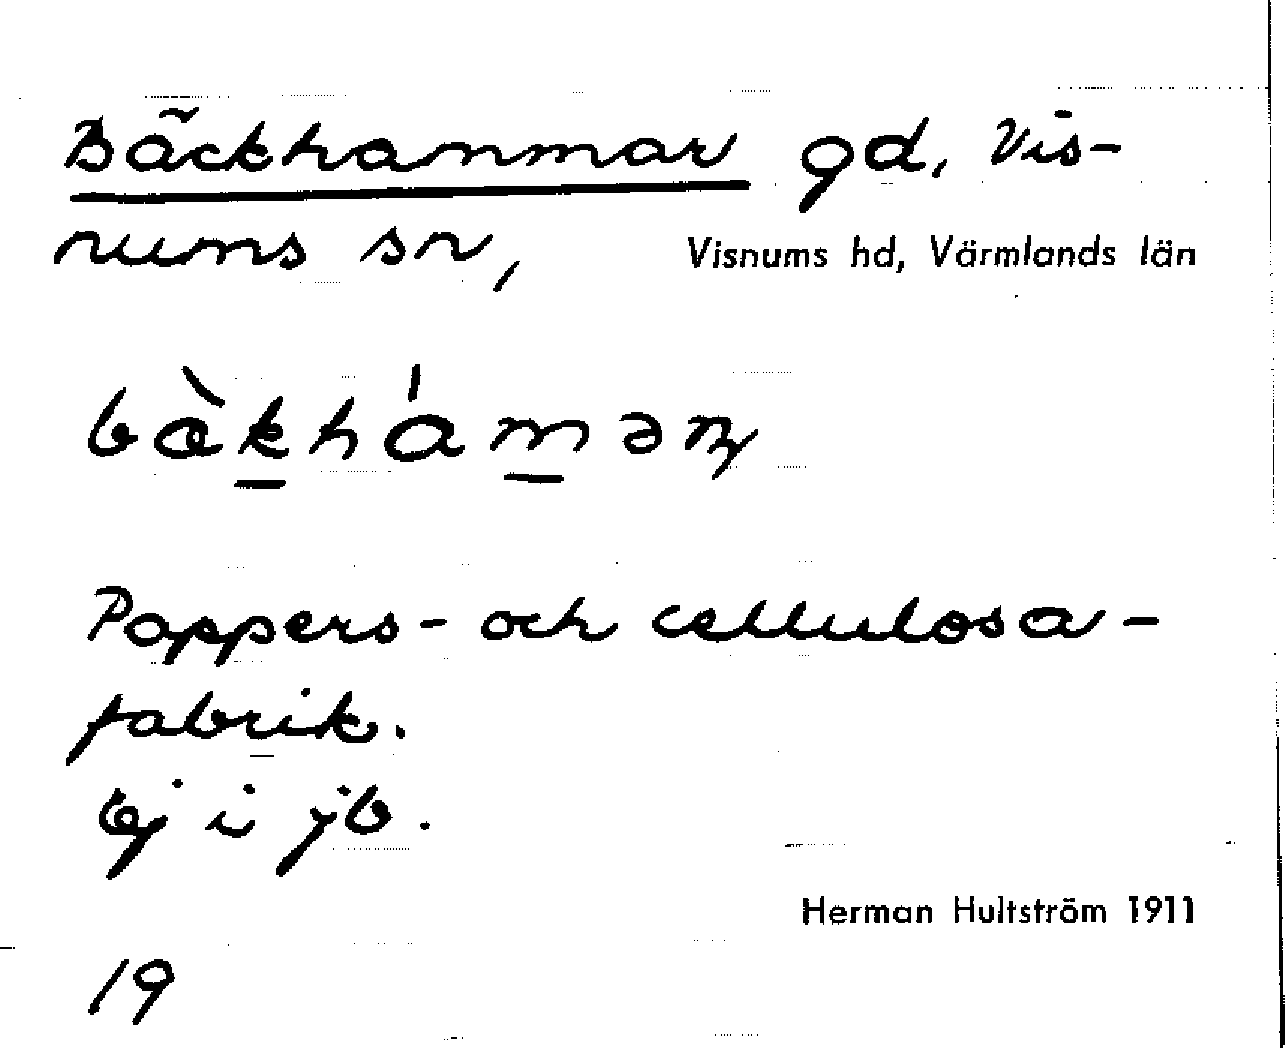 Bäckhammar gd, Vis-
nums sn, Visnums hd, Värmlands län
bæ̀kháməṇ
Pappers- och cellulosa-
fabrik.
Ej i jb.
Herman Hultström 1911
19